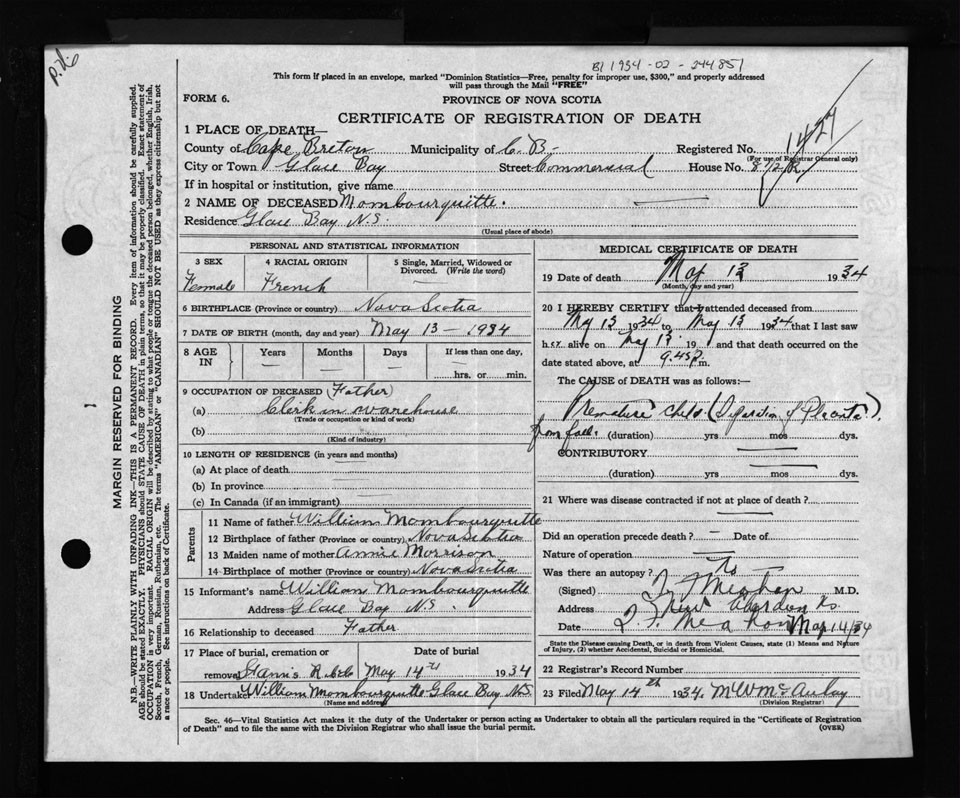 B1 1934-02-244851
This form if placed in an envelope, marked "Dominion Statistics—Free, penalty for improper use, $300," and properly addressed
will pass through the Mail "FREE"
FORM 6.
PROVINCE OF NOVA SCOTIA
CERTIFICATE OF REGISTRATION OF DEATH
1 PLACE OF DEATH—
County of Cape Breton Municipality of C.B. Registered No. 1427
(For use of Registrar General only)
City or Town Glace Bay Street Commercial House No.
If in hospital or institution, give name
2 NAME OF DECEASED Mombourquette.
Residence Glace Bay N.S.
(Usual place of abode)
PERSONAL AND STATISTICAL INFORMATION
3 SEX
Female
4 RACIAL ORIGIN
French
5 Single, Married, Widowed or Divorced. (Write the word)
6 BIRTHPLACE (Province or country) Nova Scotia
7 DATE OF BIRTH (month, day and year) May 13 - 1934
8 AGE IN
Years
Months
Days
If less than one day,
hrs. or min.
9 OCCUPATION OF DECEASED (Father)
(a) Clerk in warehouse
(Trade or occupation or kind of work)
(b)
(Kind of industry)
10 LENGTH OF RESIDENCE (in years and months)
(a) At place of death
(b) In province
(c) In Canada (if an immigrant)
Parents
11 Name of father William Mombourquette
12 Birthplace of father (Province or country) Nova Scotia
13 Maiden name of mother Annie Morrison
14 Birthplace of mother (Province or country) Nova Scotia
15 Informant's name William Mombourquette
Address Glace Bay N.S.
16 Relationship to deceased Father
17 Place of burial, cremation or Date of burial
removal May 14th 1934
18 Undertaker William Mombourquette Glace Bay N.S.
(Name and address)
MEDICAL CERTIFICATE OF DEATH
19 Date of death May 13 1934
(Month, day and year)
20 I HEREBY CERTIFY that I attended deceased from
May 13 1934 to May 13 1934 that I last saw
h er alive on May 13 19 and that death occurred on the
date stated above, at 9.45 P. m.
The CAUSE of DEATH was as follows:—
Premature child (Separation of Placenta)
from fall. (duration) yrs mos dys.
CONTRIBUTORY
(duration) yrs mos dys.
21 Where was disease contracted if not at place of death?
Did an operation precede death? Date of
Nature of operation
Was there an autopsy? No
(Signed) M.D.
Address New Aberdeen
Date May 14/34
State the Disease causing Death, or in death from Violent Causes, state (1) Means and Nature
of Injury, (2) whether Accidental, Suicidal or Homicidal.
22 Registrar's Record Number
23 Filed May 14th 1934. McAulay
(Division Registrar)
Sec. 46—Vital Statistics Act makes it the duty of the Undertaker or person acting as Undertaker to obtain all the particulars required in the "Certificate of Registration
of Death" and to file the same with the Division Registrar who shall issue the burial permit. (OVER)
MARGIN RESERVED FOR BINDING
N.B.—WRITE PLAINLY WITH UNFADING INK—THIS IS A PERMANENT RECORD. Every item of information should be carefully supplied.
AGE should be stated EXACTLY. PHYSICIANS should STATE CAUSE OF DEATH in plain terms, so that it may be properly classified. Exact statement of
OCCUPATION is very important. RACIAL ORIGIN will be described by stating to what people or tongue the deceased person belonged, whether English, Irish,
Scotch, French, German, Russian, Ruthenian, etc. The terms "AMERICAN" or "CANADIAN" SHOULD NOT BE USED as they express citizenship but not
a race or people. See instructions on back of Certificate.